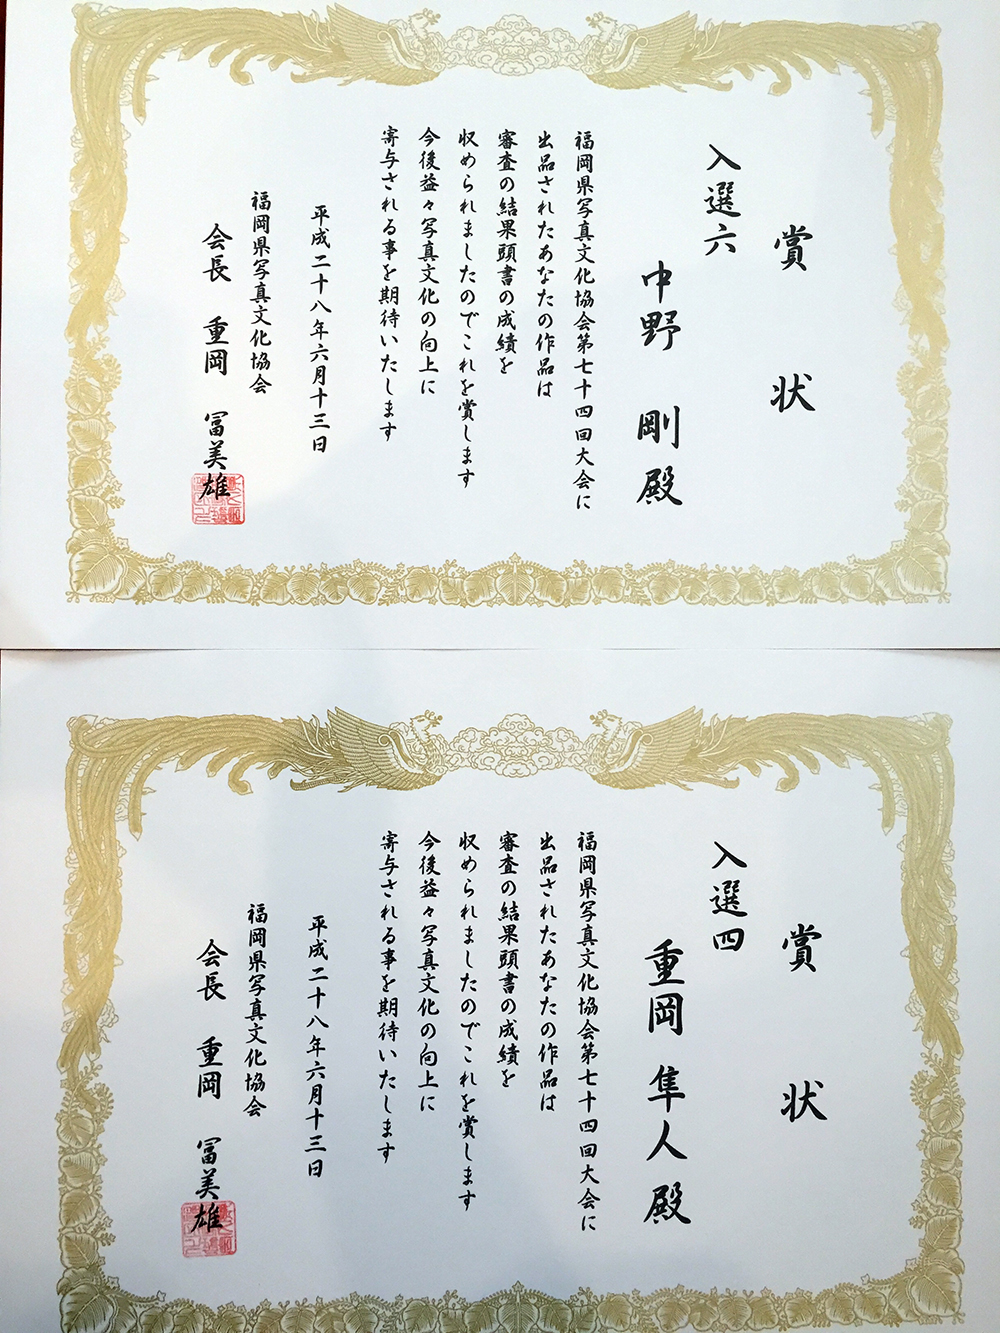 賞状
入選六
中野 剛殿
福岡県写真文化協会第七十四回大会に
出品されたあなたの作品は
審査の結果頭書の成績を
収められましたのでこれを賞します
今後益々写真文化の向上に
寄与される事を期待いたします
平成二十八年六月十三日
福岡県写真文化協会
会長 重岡 冨美雄
賞状
入選四
重岡 隼人殿
福岡県写真文化協会第七十四回大会に
出品されたあなたの作品は
審査の結果頭書の成績を
収められましたのでこれを賞します
今後益々写真文化の向上に
寄与される事を期待いたします
平成二十八年六月十三日
福岡県写真文化協会
会長 重岡 冨美雄